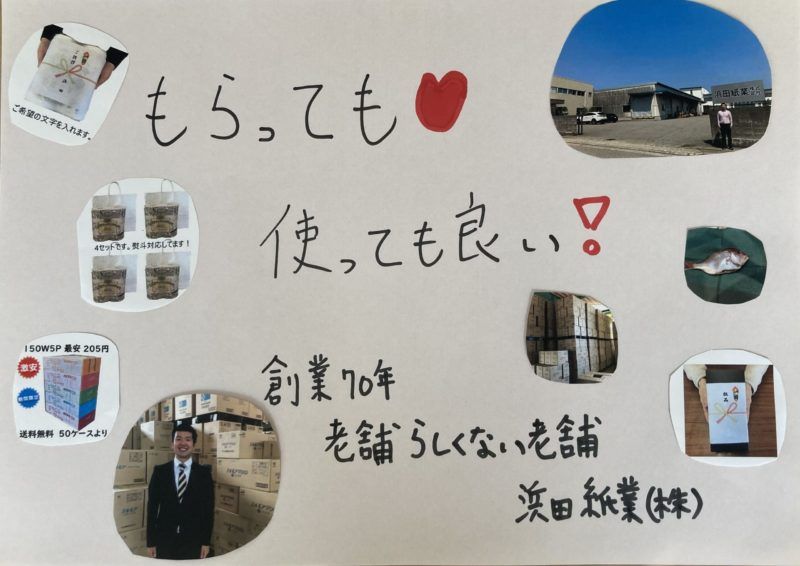 もらっても
使っても良い!
創業70年
老舗らしくない老舗
浜田紙業(株)
ご希望の文字を入れます。
4セットです。熨斗対応してます!
150W5P 最安 205円
激安
送料無料 50ケースより
浜田紙業